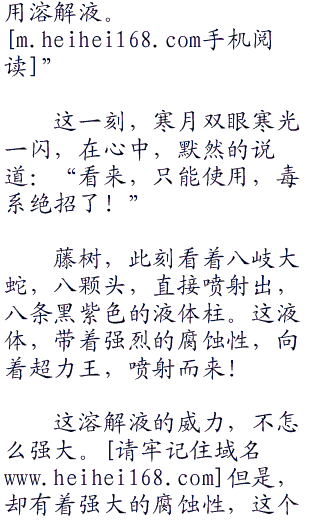 用溶解液。
[m.heihei168.com手机阅
读]”
这一刻，寒月双眼寒光
一闪，在心中，默然的说
道：“看来，只能使用，毒
系绝招了！”
藤树，此刻看着八岐大
蛇，八颗头，直接喷射出，
八条黑紫色的液体柱。这液
体，带着强烈的腐蚀性，向
着超力王，喷射而来！
这溶解液的威力，不怎
么强大。[请牢记住域名
www.heihei168.com]但是，
却有着强大的腐蚀性，这个